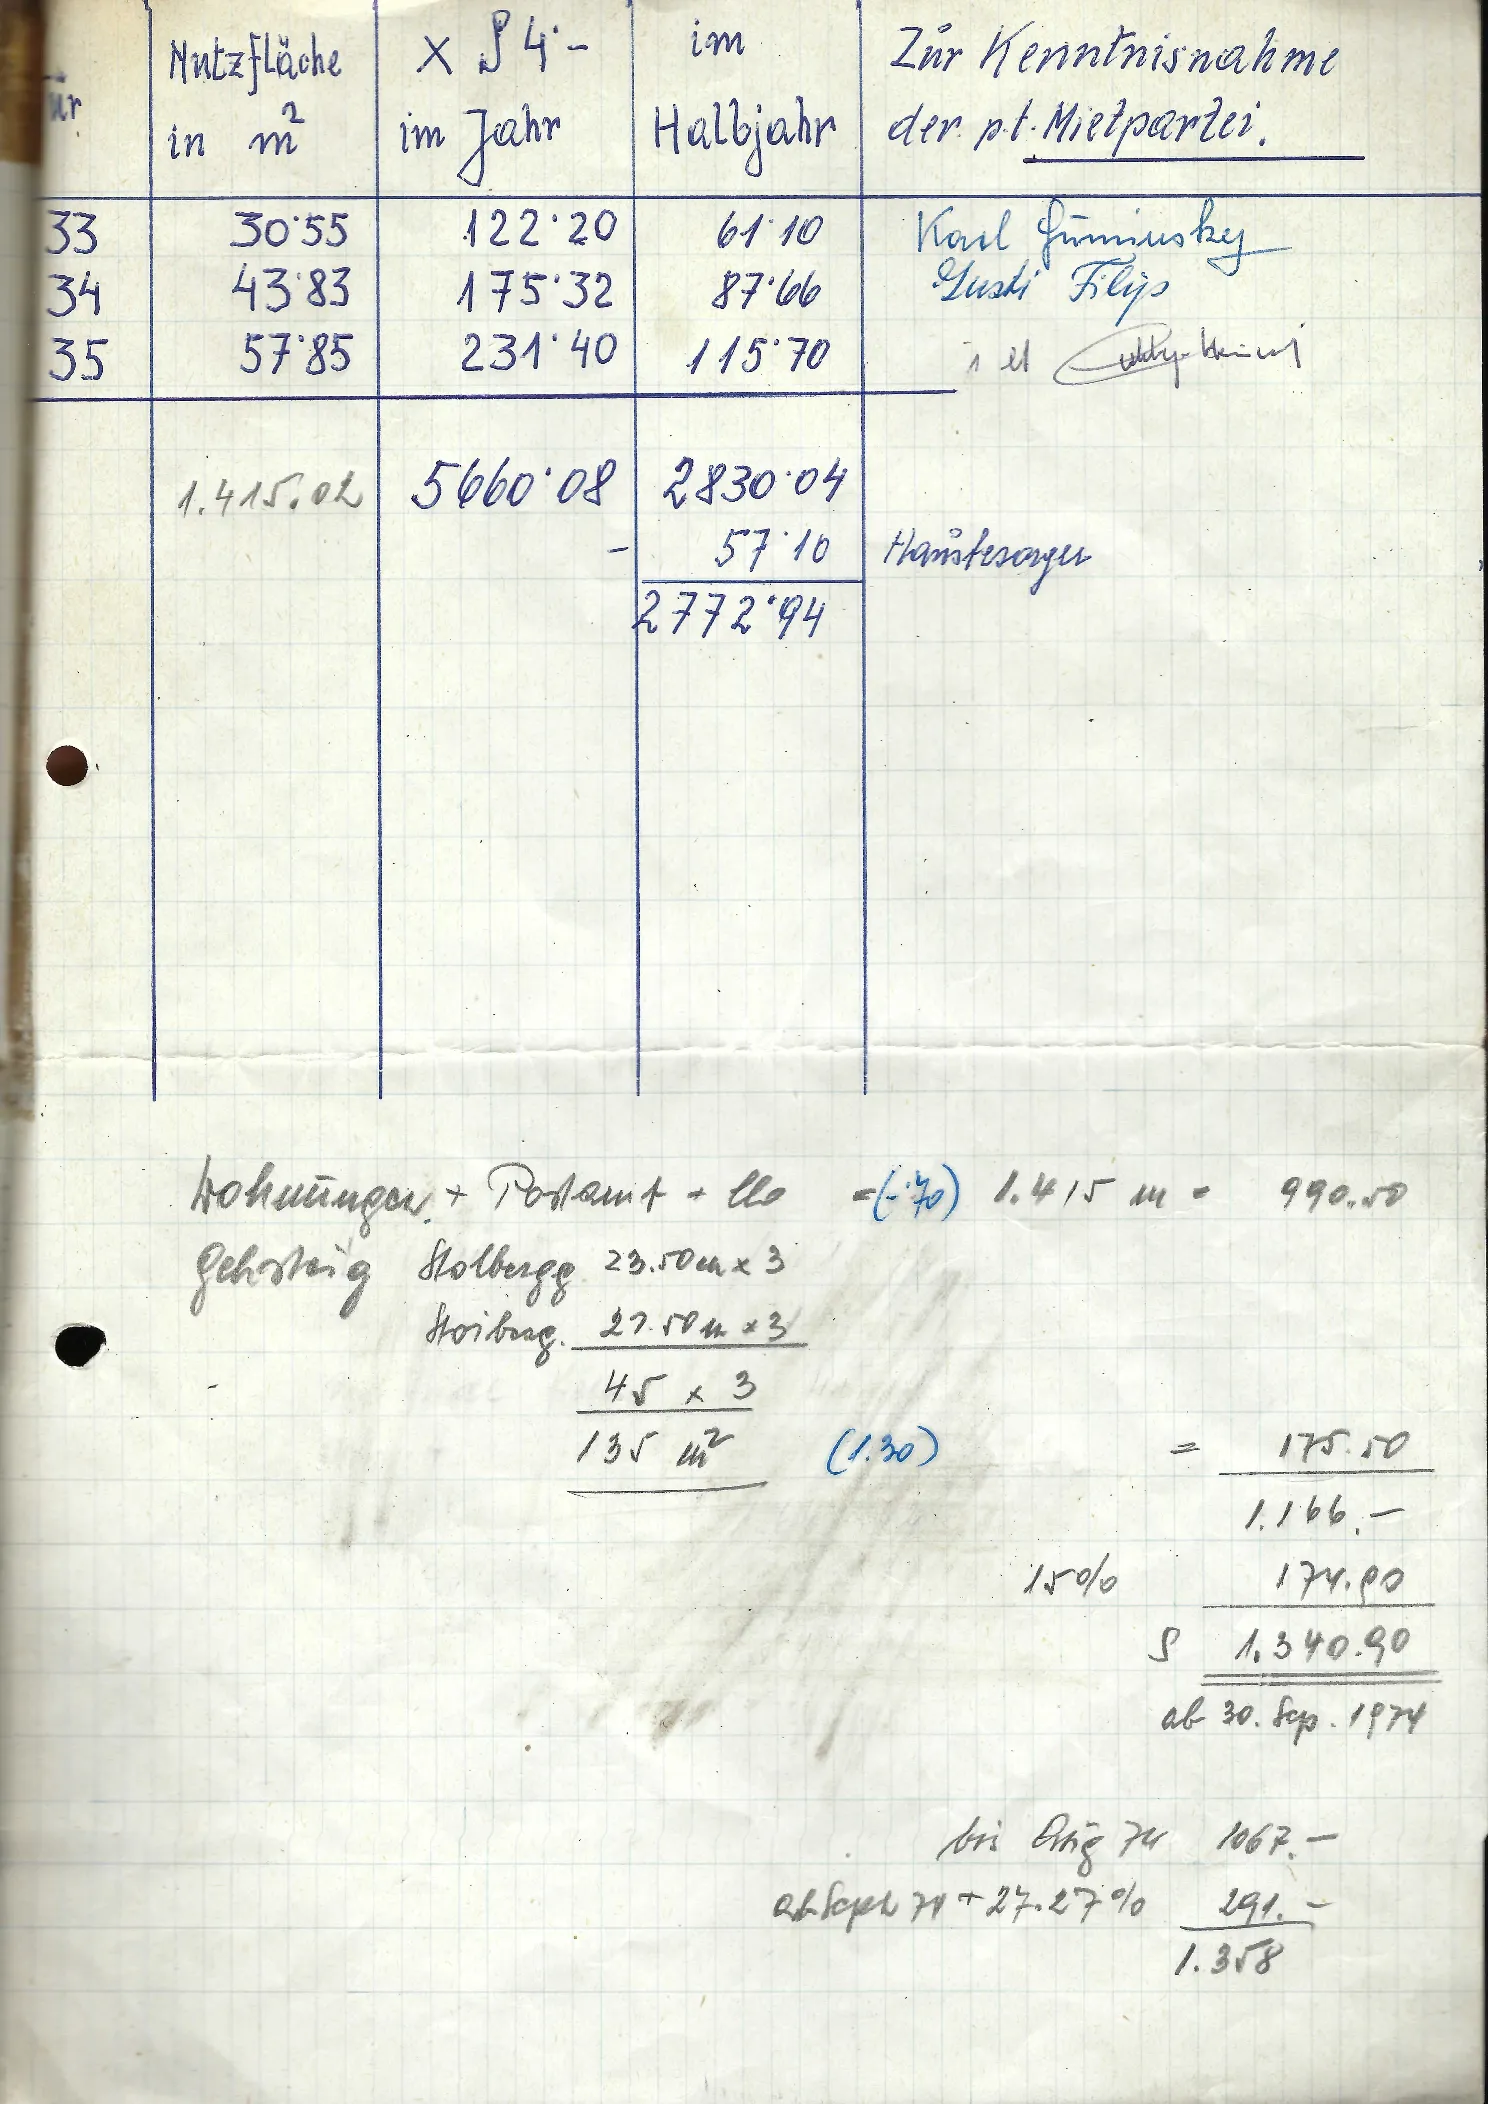 ür Nutzfläche in m² × S 4·- im Jahr im Halbjahr Zur Kenntnisnahme der p.t. Mietpartei.
33 30·55 122·20 61·10 Karl
34 43·83 175·32 87·66 Gusti Filip
35 57·85 231·40 115·70
1.415.02 5660·08 2830·04
- 57·10 Hausbesorger
2772·94
Wohnungen + Postamt + = (-·70) 1.415 m = 990.50
Gehsteig Stolbergg 23.50 m × 3
× 3
45 × 3
135 m² (1.30) = 175.50
1.166.-
15% 174.90
S 1.340.90
ab 30. Sep. 1974
bis Aug 74 1067.-
ab Sept 74 + 27.27% 291.-
1.358